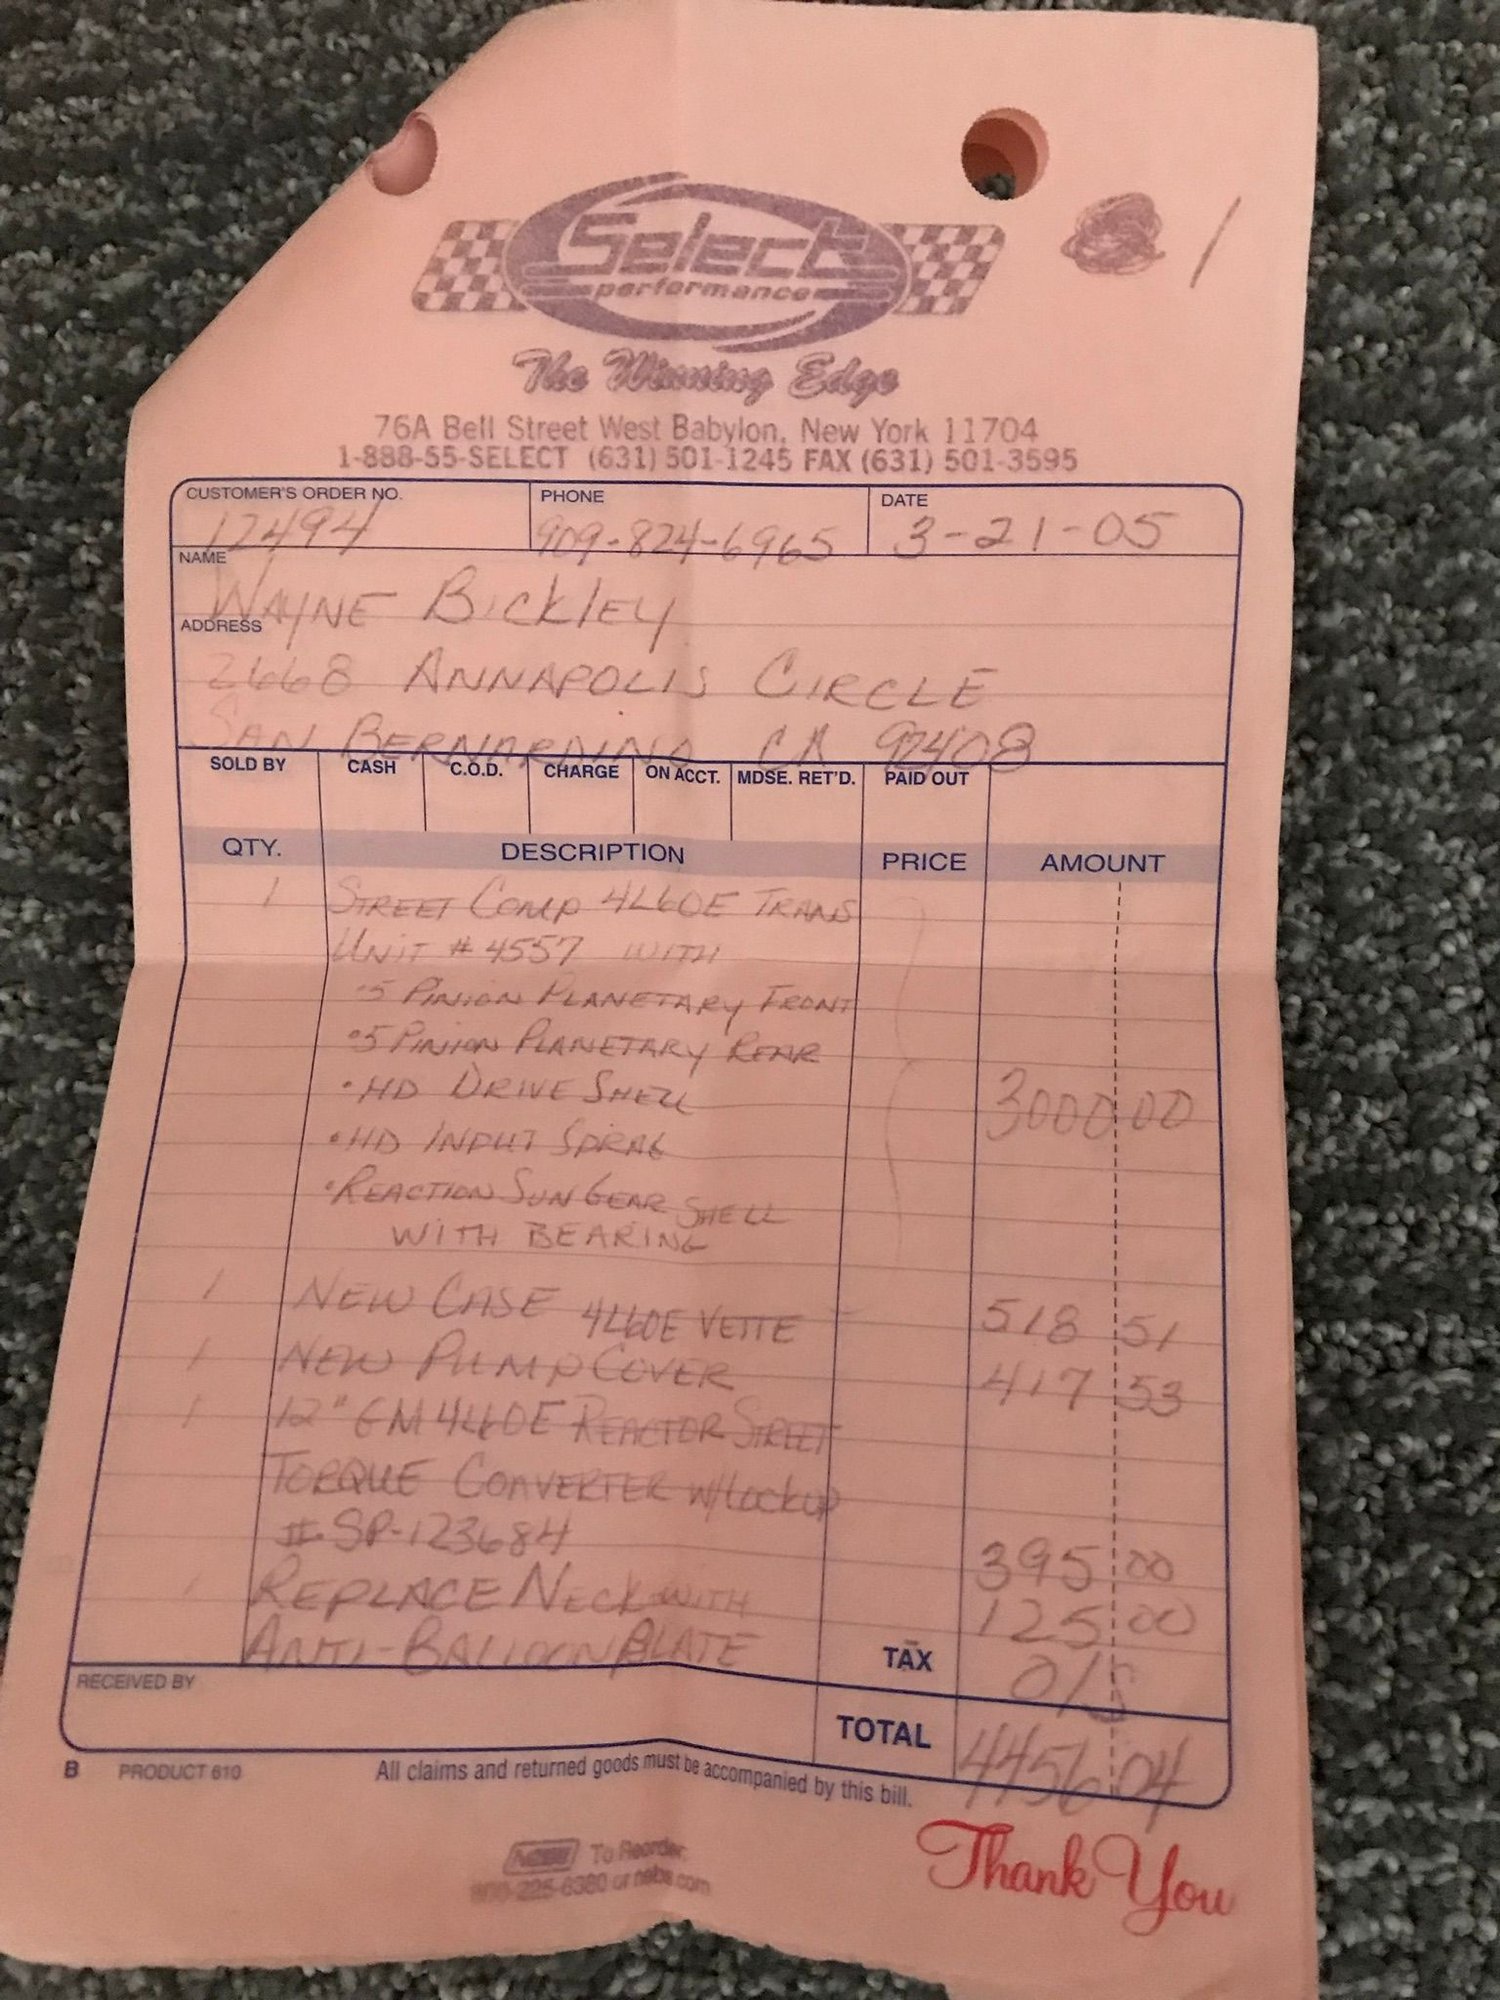 1
Select
performance
The Winning Edge
76A Bell Street West Babylon, New York 11704
1-888-55-SELECT (631) 501-1245 FAX (631) 501-3595
CUSTOMER'S ORDER NO. PHONE DATE
12494 909-824-6965 3-21-05
NAME
WAYNE BICKLEY
ADDRESS
2668 ANNAPOLIS CIRCLE
SAN BERNARDINO CA 92408
SOLD BY CASH C.O.D. CHARGE ON ACCT. MDSE. RET'D. PAID OUT
QTY. DESCRIPTION PRICE AMOUNT
1 STREET COMP 4L60E TRANS
UNIT # 4557 WITH
•5 PINION PLANETARY FRONT
•5 PINION PLANETARY REAR
•HD DRIVE SHELL 3000 00
•HD INPUT SPRAG
•REACTION SUN GEAR SHELL
WITH BEARING
1 NEW CASE 4L60E VETTE 518 51
1 NEW PUMP COVER 417 53
1 12" GM 4L60E REACTOR STREET
TORQUE CONVERTER W/LOCKUP
# SP-123684 395 00
1 REPLACE NECK WITH 125 00
ANTI-BALLOON PLATE TAX O/S
RECEIVED BY
TOTAL 4456 04
B PRODUCT 610 All claims and returned goods must be accompanied by this bill.
Thank You
To Reorder:
800-225-6380 or nebs.com